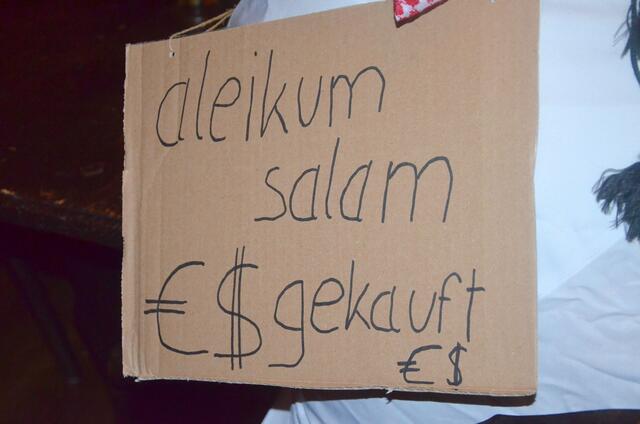 aleikum
salam
€$gekauft
€$